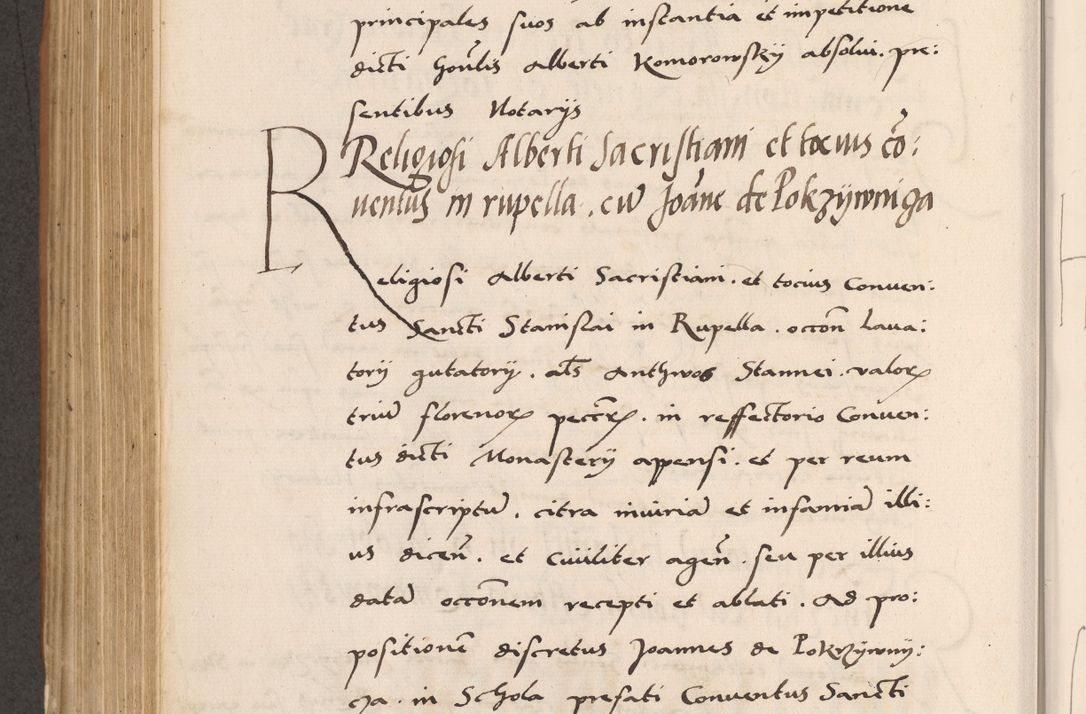 principales suos ab instantia et impetitione
dicti honlis Alberti Komorowskÿ absolui. pre:
sentibus Notarijs
Religiosi Alberti Sacristiani et tocius cō:
uentus in rupella. cū Joāne de Pokzÿwniga
Religiosi Alberti Sacristiani. et tocius Conuen:
tus Sancti Stanislai in Rupella. occōn Laua:
torij gutatorij. als Anthwos Stannei. valoꝝ
triū florenoꝝ peccrꝝ. in reffectorio Conuen:
tus dicti Monasterij appensi. et per reum
infrascriptū. citra iniuriā et infamiā illi:
us diceñ. et ciuiliter ageñ. seu per illius
datā occōnem recepti et ablati. Ad pro:
positionē discretus Joannes de Pokrzÿwnÿ:
cza. in Schola prefati Conuentus Sancti